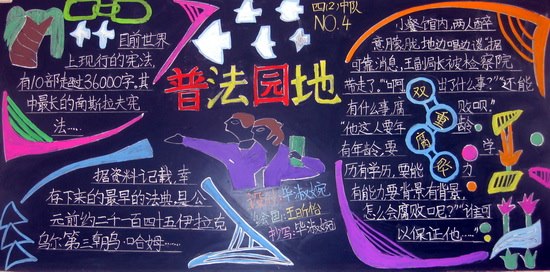 目前世界
上现行的宪法,
有10部超过36000字,其
中最长的南斯拉夫宪
法……
据资料记载,幸
存下来的最早的法典是公
元前约二千一百四十五伊拉克
乌尔第三朝乌·哈姆……
四(2)中队
NO.4
普法园地
毕淑婉
绘图:王昕俗
抄写:毕淑婉
小餐馆内,两人醉
意朦胧地边喝边
可靠消息,王副局长被检察院
带走了。”“啊,出了什么事?”“还能
有什么事腐败呗”
“他这人要年龄
有年龄,要学
历有学历,要能力
有能力要背景有背景,
怎么会腐败呢?”“谁可
以保证他……
双重